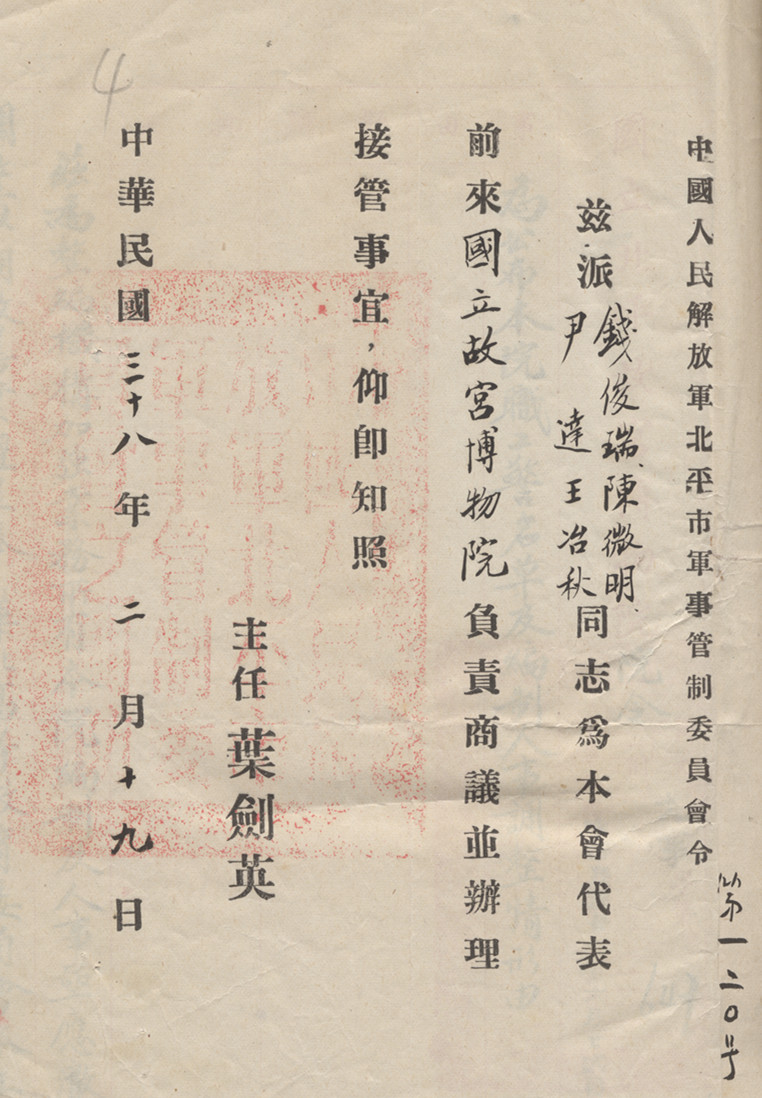 中國人民解放軍北平市軍事管制委員會令
第一二〇号
茲派錢俊瑞、陳微明、尹達王冶秋同志為本會代表
前來國立故宮博物院負責商議並辦理
接管事宜，仰卽知照
主任葉劍英
中華民國三十八年二月十九日
4